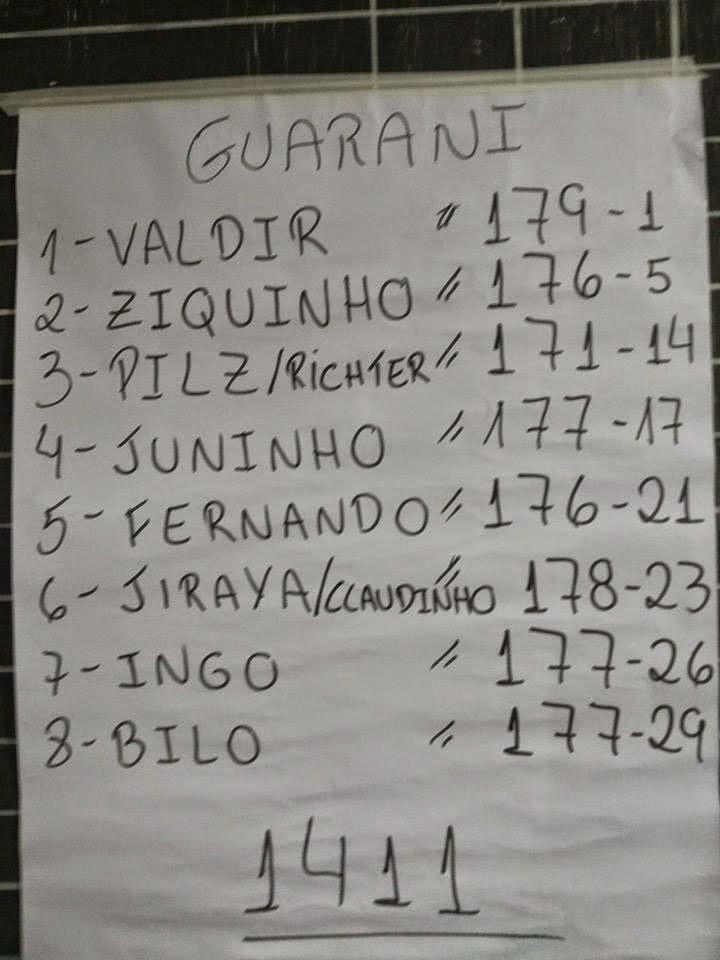 GUARANI
1-VALDIR " 179-1
2-ZIQUINHO " 176-5
3-PILZ/RiCHTER " 171-14
4-JUNINHO " 177-17
5-FERNANDO " 176-21
6-JIRAYA/CLAUDINHO " 178-23
7-INGO " 177-26
8-BILO " 177-29
1411